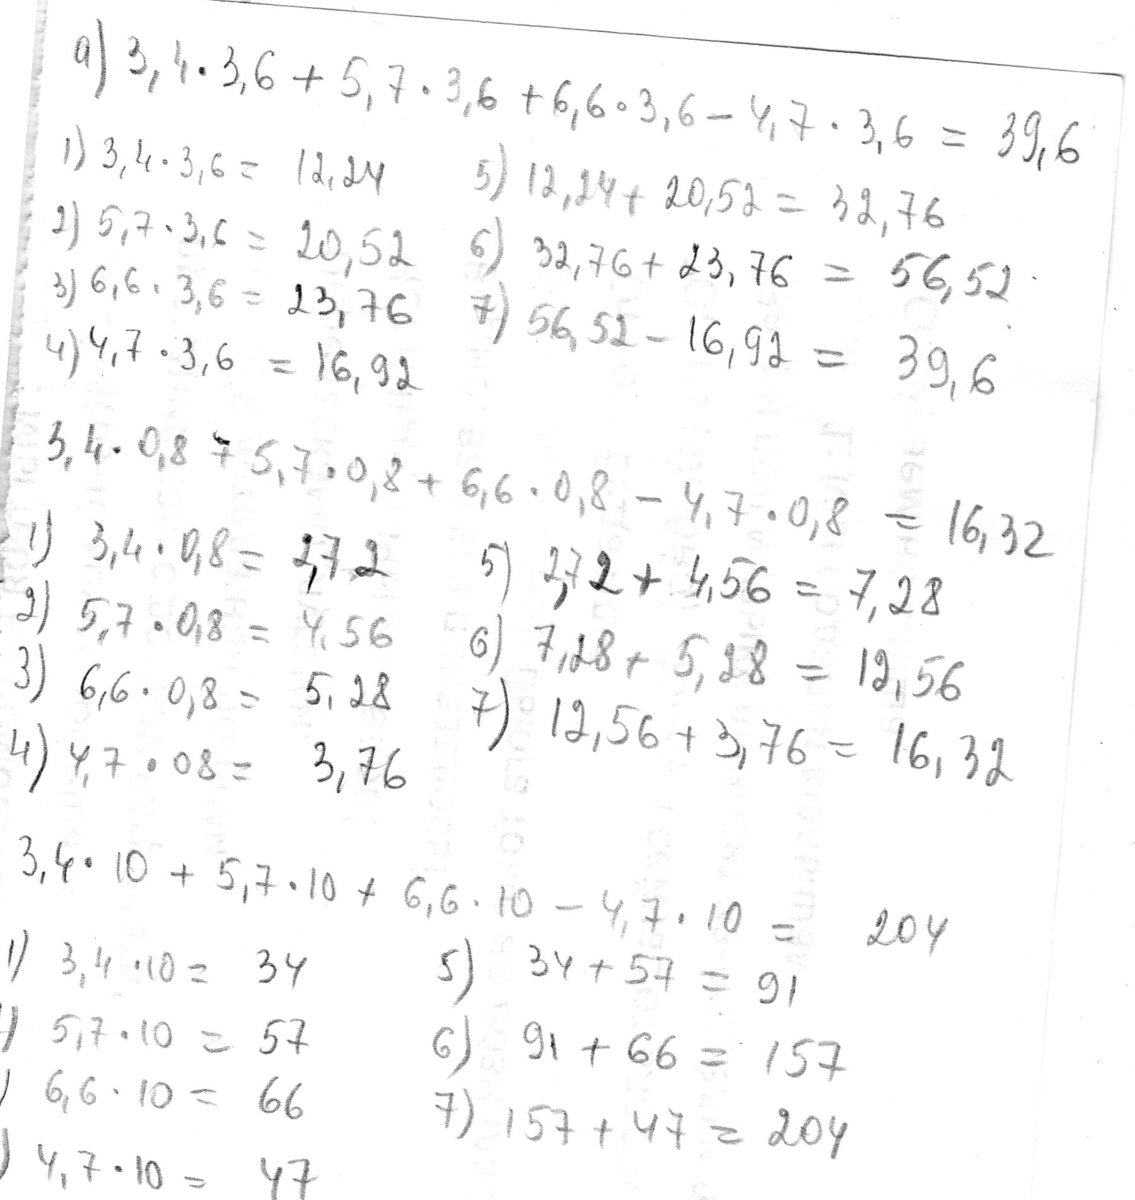 а) 3,4·3,6 + 5,7·3,6 + 6,6·3,6 - 4,7·3,6 = 39,6
1) 3,4·3,6 = 12,24
2) 5,7·3,6 = 20,52
3) 6,6·3,6 = 23,76
4) 4,7·3,6 = 16,92
5) 12,24 + 20,52 = 32,76
6) 32,76 + 23,76 = 56,52
7) 56,52 - 16,92 = 39,6
3,4·0,8 + 5,7·0,8 + 6,6·0,8 - 4,7·0,8 = 16,32
1) 3,4·0,8 = 2,72
2) 5,7·0,8 = 4,56
3) 6,6·0,8 = 5,28
4) 4,7·08 = 3,76
5) 2,72 + 4,56 = 7,28
6) 7,28 + 5,28 = 12,56
7) 12,56 + 3,76 = 16,32
3,4·10 + 5,7·10 + 6,6·10 - 4,7·10 = 204
1) 3,4·10 = 34
) 5,7·10 = 57
) 6,6·10 = 66
) 4,7·10 = 47
5) 34 + 57 = 91
6) 91 + 66 = 157
7) 157 + 47 = 204